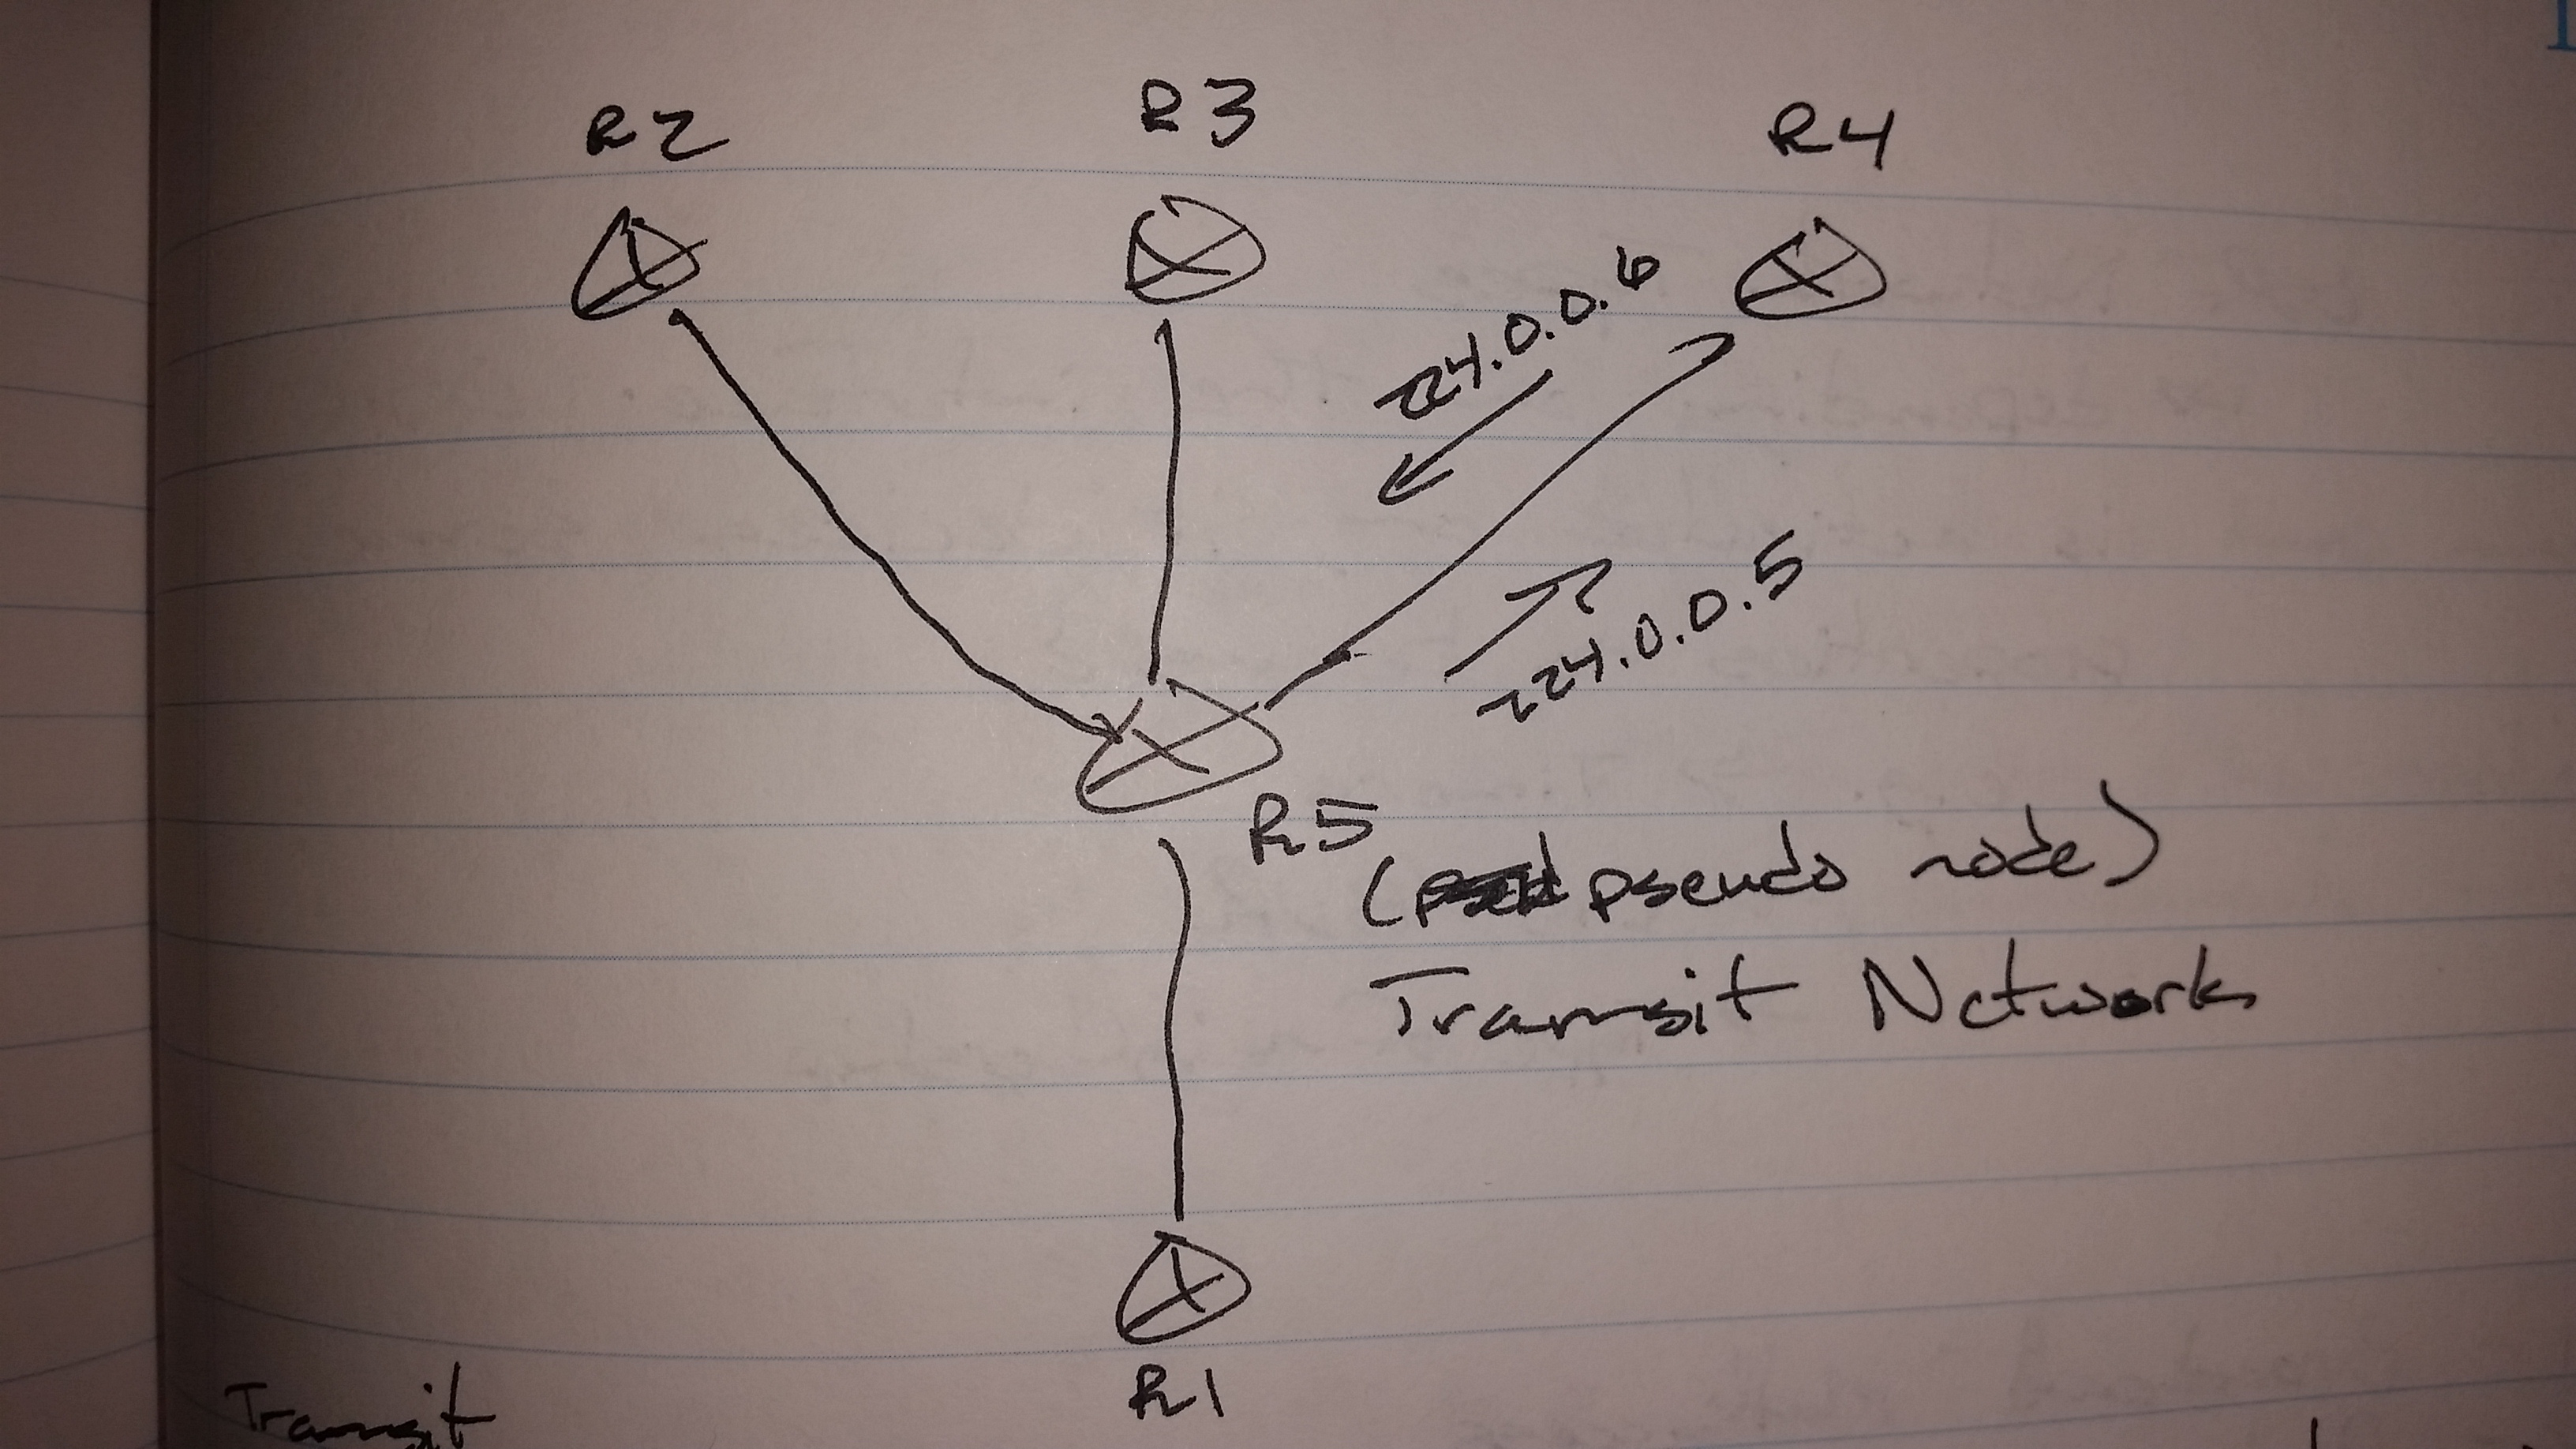 R2
R3
R4
224.0.0.6
224.0.0.5
R5
(pseudo node)
Transit Network
R1
Transit